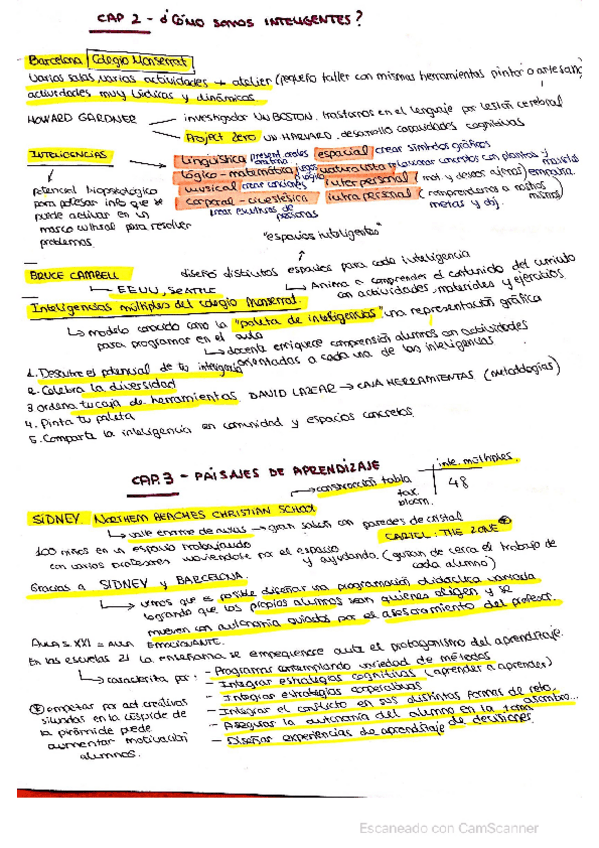 CAP 2 - ¿CÓMO SOMOS INTELIGENTES?
Barcelona Colegio Monserrat
varias salas, varias actividades → atelier (pequeño taller con mismas herramientas pintor o artesano)
actividades muy lúdicas y dinámicas.
HOWARD GARDNER
investigador UN BOSTON. trastornos en el lenguaje por lesión cerebral
Project Zero UN HARVARD. desarrollo capacidades cognitivas
INTELIGENCIAS
lingüística present. orales espacial crear símbolos gráficos
lógico-matemática juegos lógica naturalista relacionar conceptos con plantas y
musical crear canciones interpersonal (mot. y deseos ajenos) empatía.
corporal-cinestésica intrapersonal (comprendernos a nosotros mismos)
crear esculturas de personas
metas y obj.
potencial biopsicológico
para procesar info que se
puede activar en un
marco cultural para resolver
problemas.
"espacios inteligentes"
BRUCE CAMBELL
diseñó distintos espacios para cada inteligencia
EEUU, SEATTLE
Anima a comprender el contenido del currículo
con actividades, materiales y ejercicios.
Inteligencias múltiples del colegio Monserrat.
modelo conocido como la "paleta de inteligencias" una representación gráfica
para programar en el aula
docente enriquece comprensión alumnos con actividades
orientadas a cada una de las inteligencias
1. Descubre el potencial de tu inteligencia
2. Celebra la diversidad
3 ordena tu caja de herramientas. DAVID LAZEAR → CAJA HERRAMIENTAS (metodologías)
4. Pinta tu paleta
5. Comparte la inteligencia en comunidad y espacios concretos.
CAP. 3 - PAISAJES DE APRENDIZAJE
construcción tabla
inte. múltiples.
tax. bloom.
48
SIDNEY. NORTHERN BEACHES CHRISTIAN SCHOOL
gran salón con paredes de cristal
CARTEL: THE ZONE
100 niños en un espacio trabajando
con varios profesores moviéndose por el espacio y ayudando. (guían de cerca el trabajo de
cada alumno)
Gracias a SIDNEY y BARCELONA
vemos que es posible diseñar una programación didáctica variada
logrando que los propios alumnos sean quienes eligen y se
mueven con autonomía guiados por el asesoramiento del profesor.
AULA S. XXI = AULA EMOCIONANTE.
En las escuelas 21 la enseñanza se empequeñece ante el protagonismo del aprendizaje.
caracteriza por:
- Programar contemplando variedad de métodos
- Integrar estrategias cognitivas (aprender a aprender)
- Integrar estrategias cooperativas
- Integrar el conflicto en sus distintas formas de reto, asombro...
- Asegurar la autonomía del alumno en la toma
de decisiones.
- Diseñar experiencias de aprendizaje
empezar por act creativas
situadas en la cúspide de
la pirámide puede
aumentar motivación
alumnos.
Escaneado con CamScanner